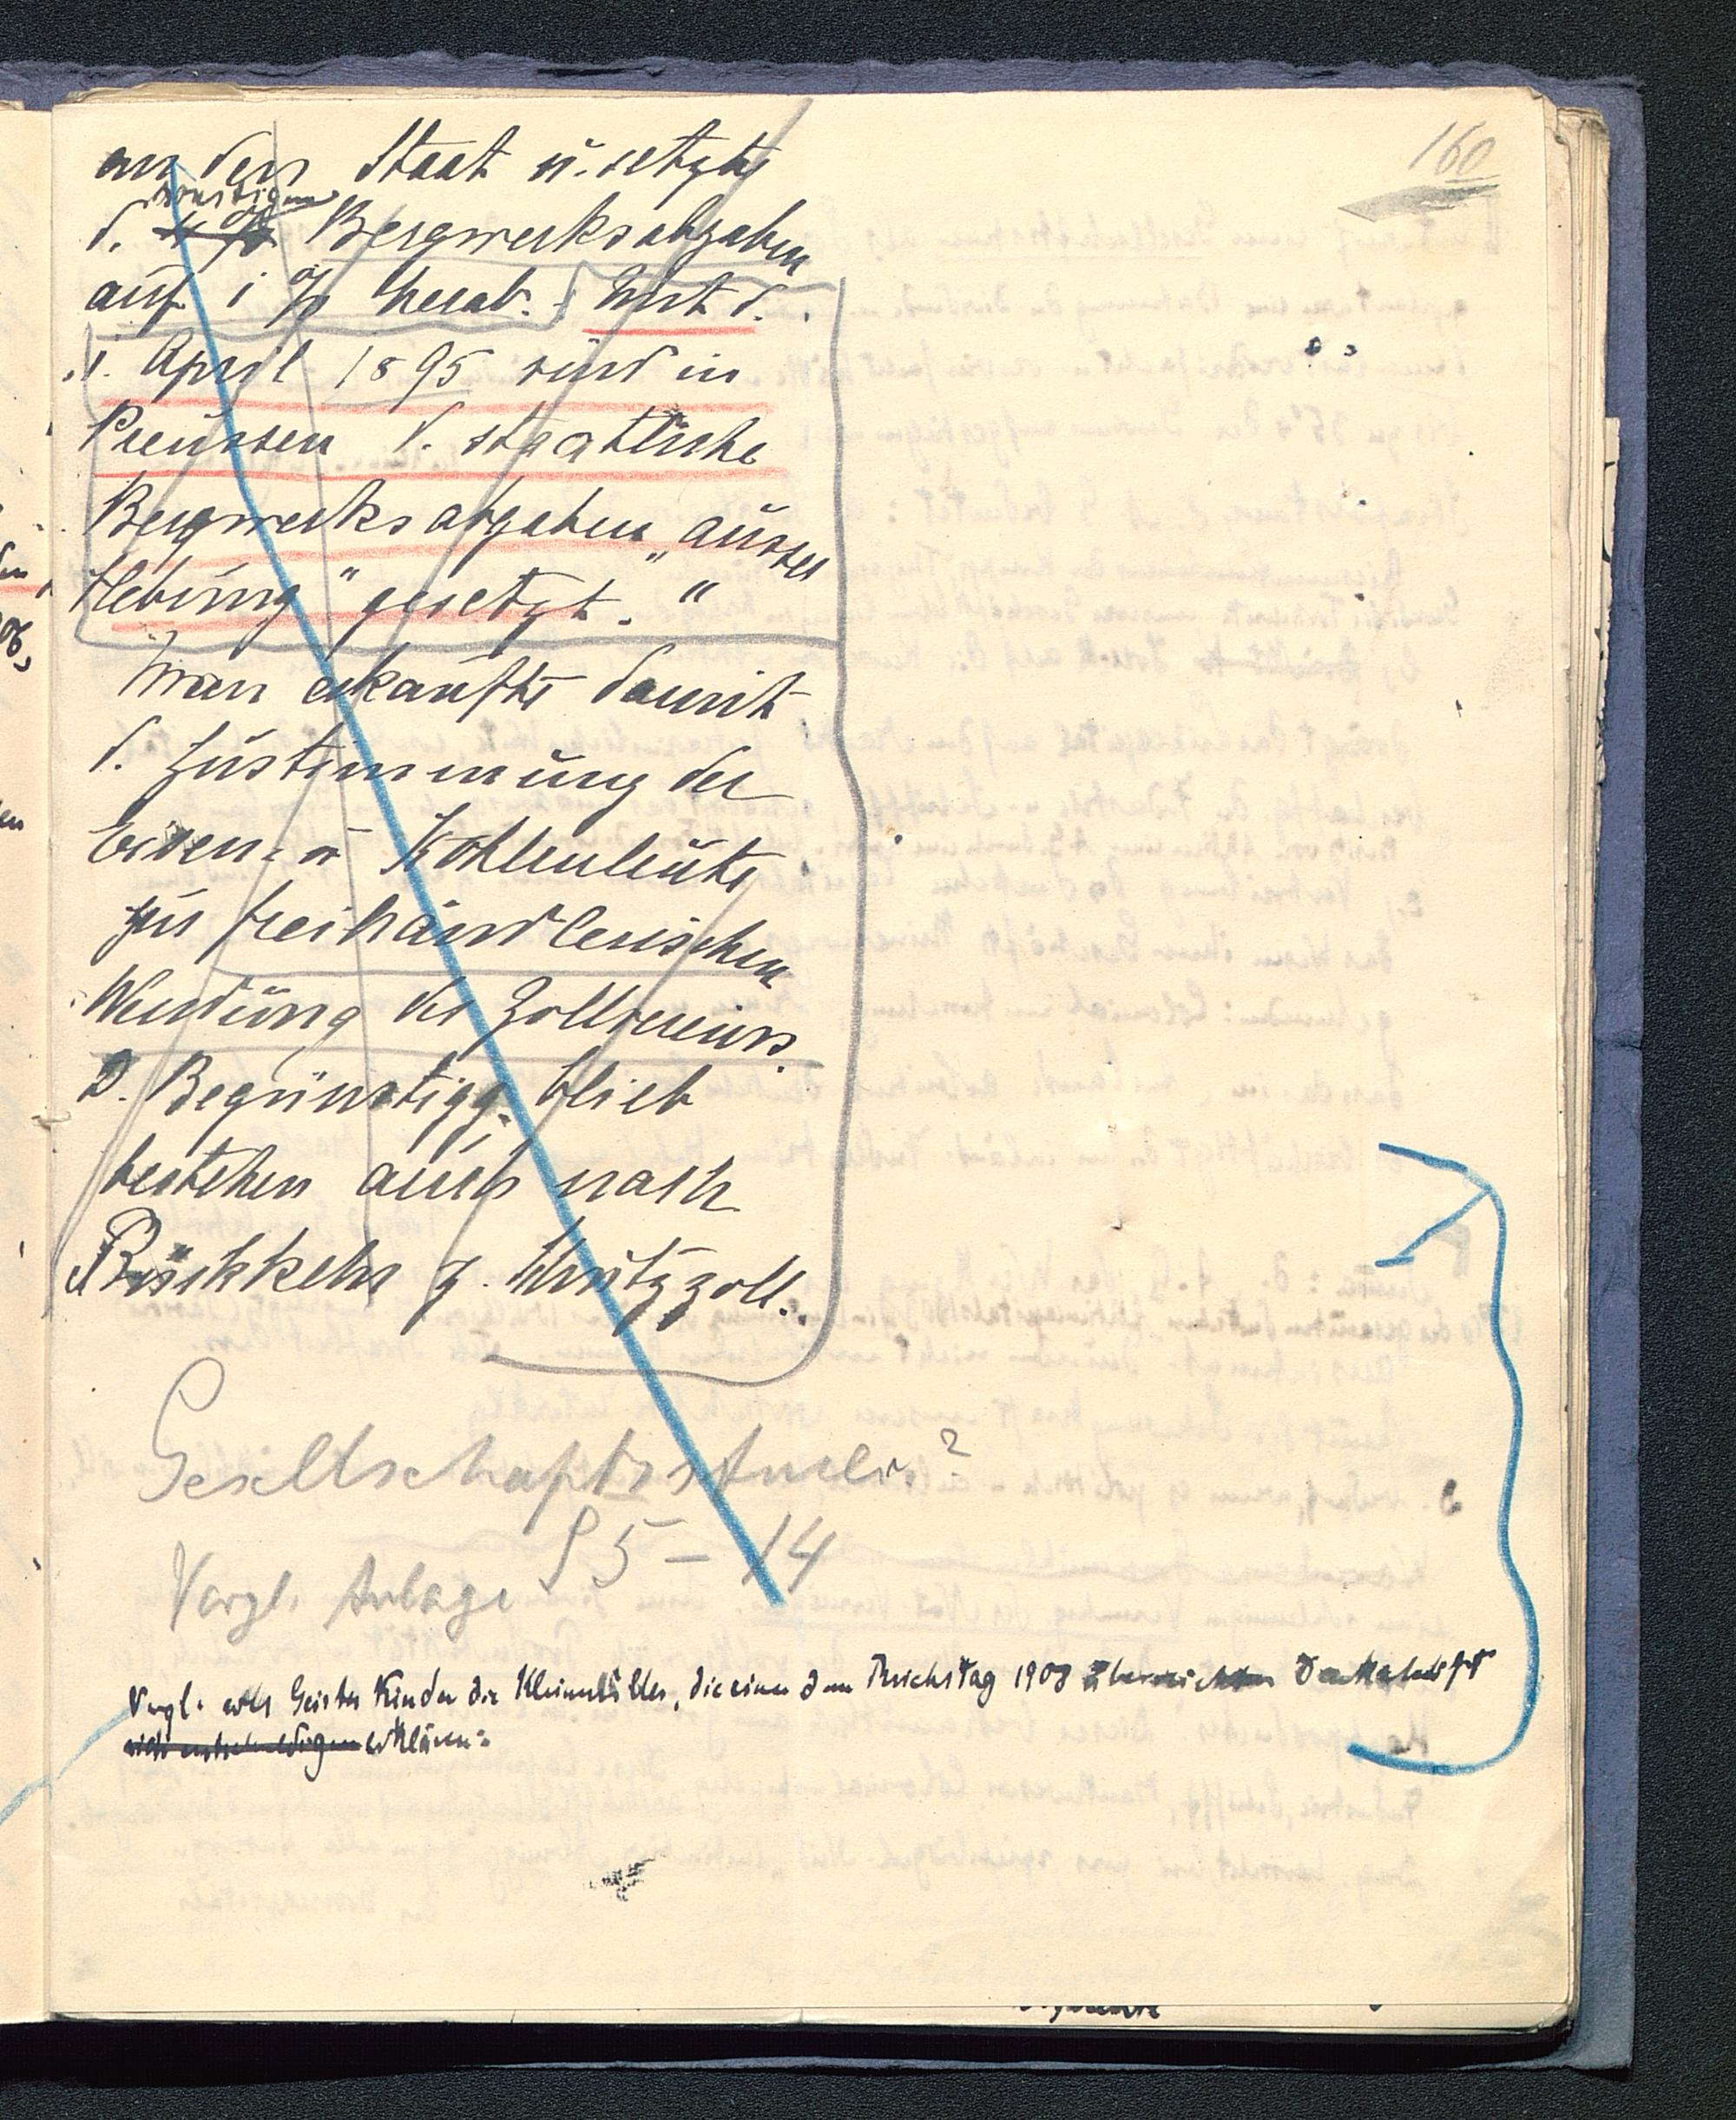 160
an den Staat u. setzte
sonstigen
d. Bergwerksabgaben
auf 1 % herab. Mit d.
1. April 1895 sind in
Preussen d. staatliche
Bergwerksabgaben „ausser
Hebung" gesetzt."
Man erkaufte damit
d. Zustimmung der
Eisen- u Kohlenleute
zur freihändlerischen
Wendung des Zollvereins.
D. Begünstigg. blieb
bestehen auch nach
Rückkehr z. Schutzzoll.
Gesellschaftssteuer?
S 5 – 14
Vergl. Anlage
Vergl. wes Geistes Kinder die Kleinmüller, die einer dem Reichstag 1908 Denkschrift
erklären: